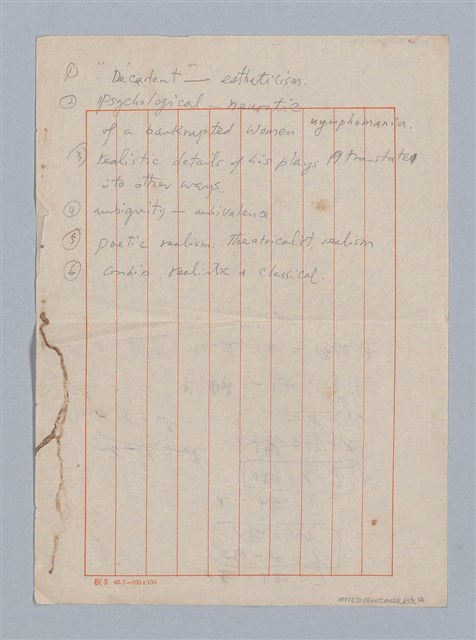 ① "Decadent" — estheticism.
② Psychological — neurotic
of a bankrupted women nymphomania.
③ realistic details of his plays translates
into other ways.
④ ambiguity — ambivalence
⑤ poetic realism. Theatricalist. realism
⑥ combin realistic & classical.
63.7—100×100